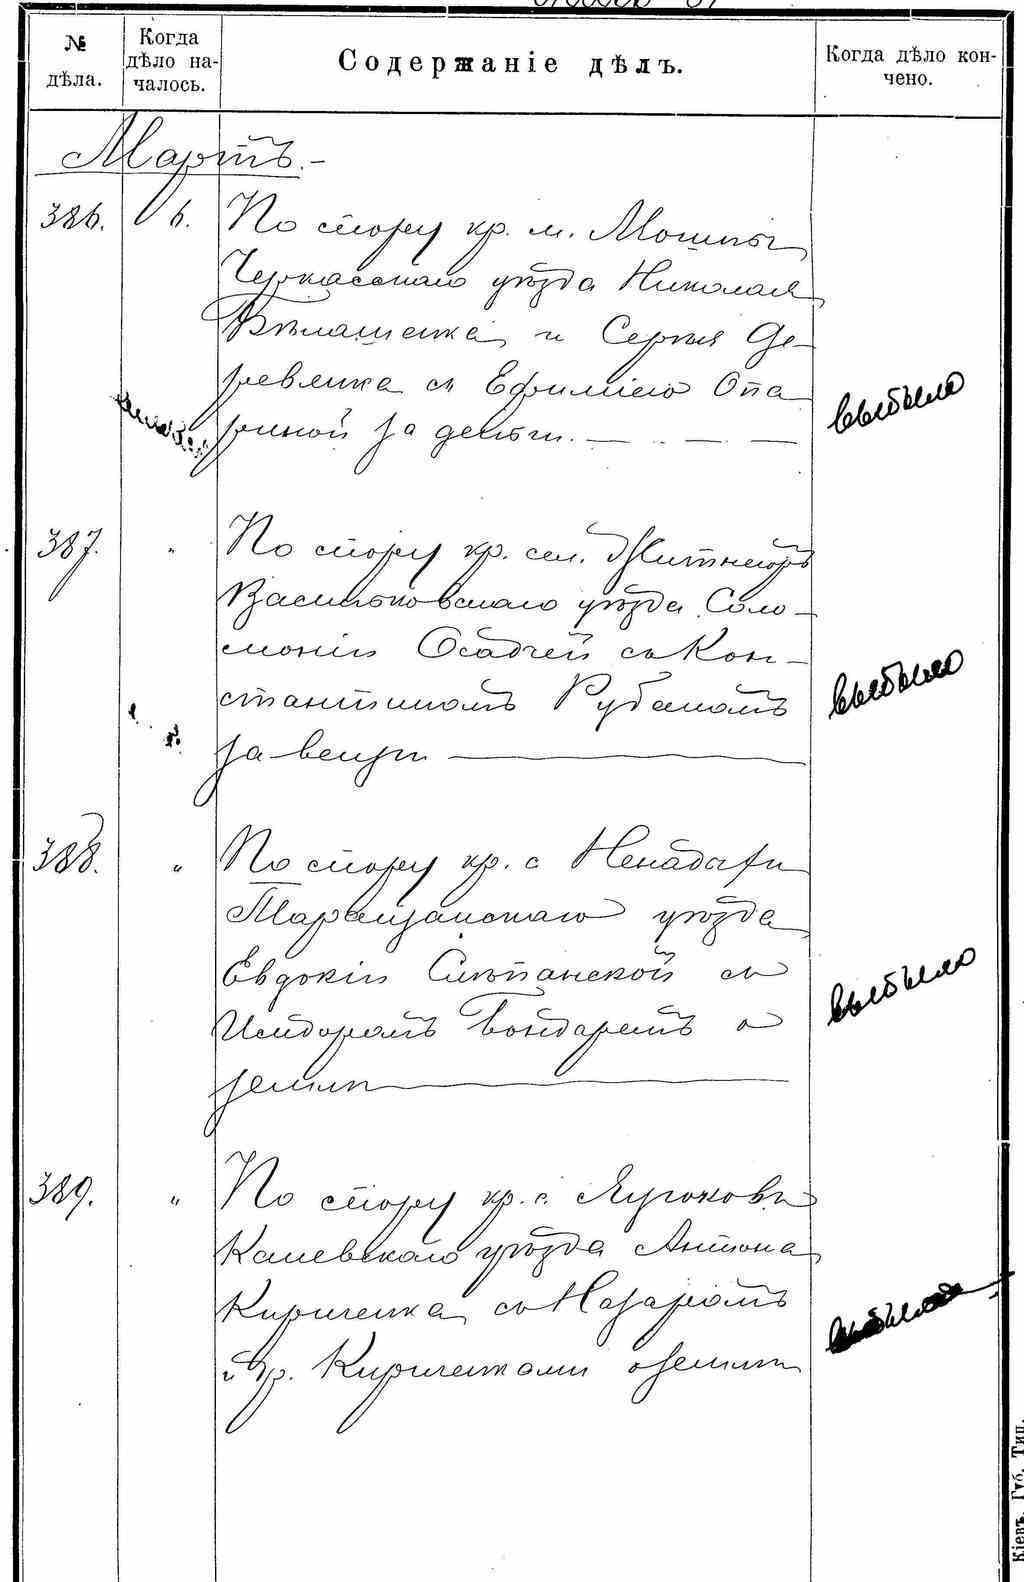 № дѣла.
Когда дѣло на-
чалось.
Содержаніе дѣлъ.
Когда дѣло кон-
чено.
Мартъ.-
386. 6. По спору кр. м. Мошны
Черкасскаго уѣзда Николая
Бѣлашенка и Сергѣя Де-
ревянка съ Ефиміею Опа
риной за деньги.
выбыло
387. " По спору кр. сел. Житнегоръ
Васильковскаго уѣзда Соло-
моніи Осадчей съ Кон-
стантиномъ Рубаномъ
за вещи
выбыло
388. " По спору кр. с Ненадыхи
Таращанскаго уѣзда
Евдокіи Слѣпанской съ
Исидоромъ Бондаремъ о
землѣ
выбыло
389. " По спору кр. с.
Каневскаго уѣзда Антона
Кириченка съ Назаромъ
и др. Кириченками о землѣ
выбыло
Кіевъ. Губ. Тип.